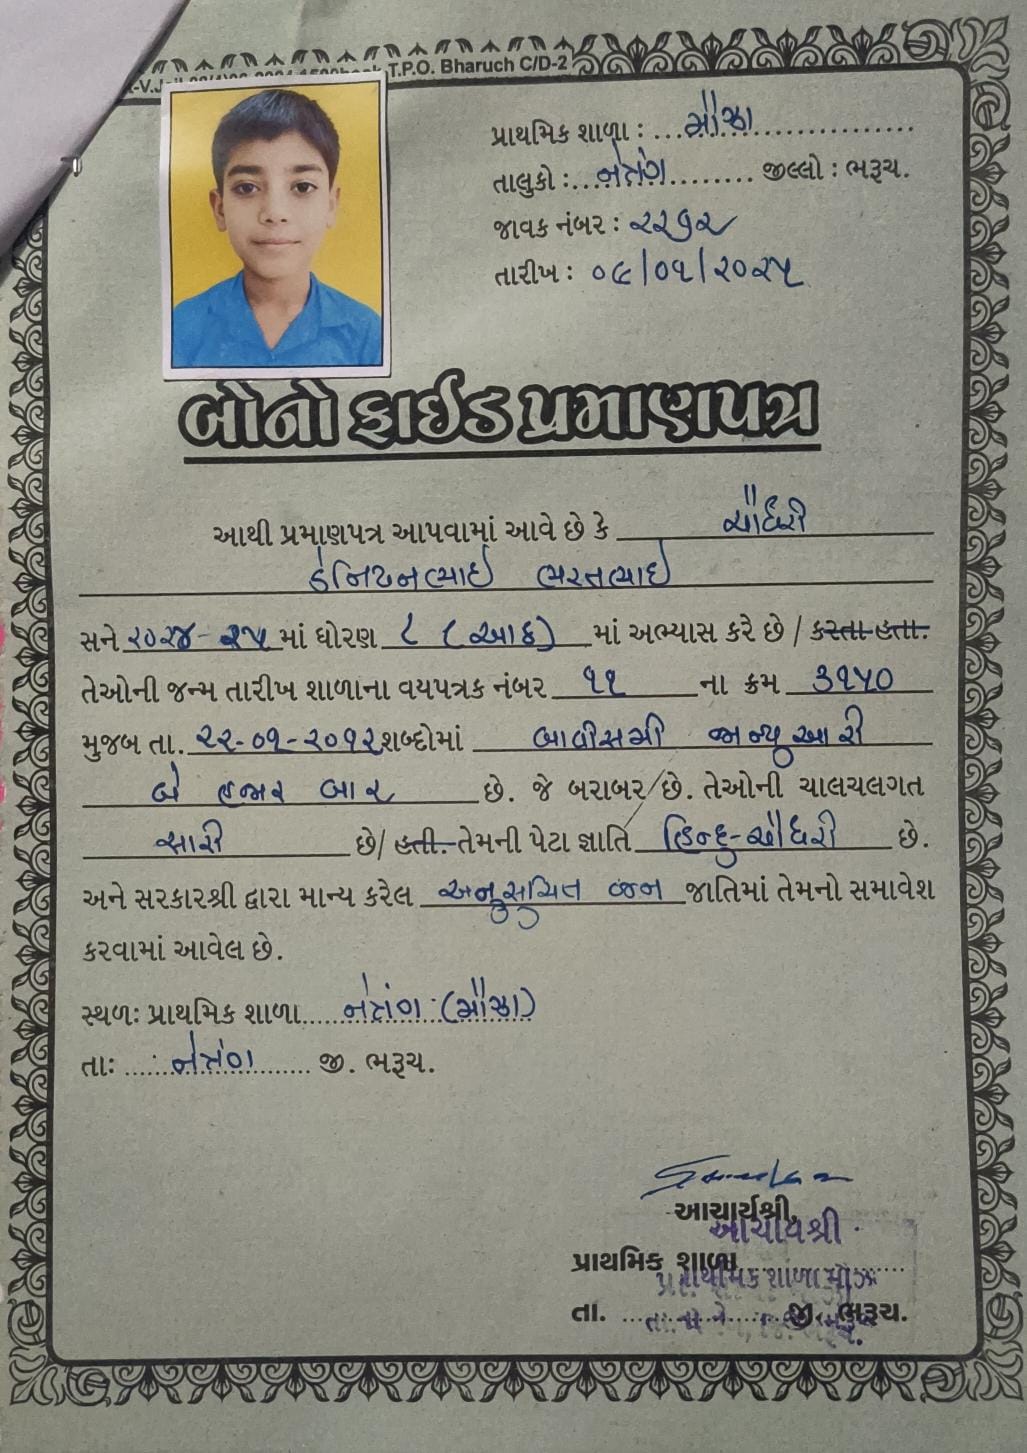 T.P.O. Bharuch C/D-2
પ્રાથમિક શાળા : મૌઝા
તાલુકો : નેત્રંગ જીલ્લો : ભરૂચ.
જાવક નંબર : ૨૨૭૨
તારીખ : ૦૯/૦૧/૨૦૨૫
બોનોફાઈડ પ્રમાણપત્ર
આથી પ્રમાણપત્ર આપવામાં આવે છે કે ચૌધરી
ડેનિટનભાઈ ભરતભાઈ
સને ૨૦૨૪-૨૫ માં ધોરણ ૮ (આઠ) માં અભ્યાસ કરે છે / કરતા હતા.
તેઓની જન્મ તારીખ શાળાના વયપત્રક નંબર ૧૧ ના ક્રમ ૩૧૫૦
મુજબ તા. ૨૨-૦૧-૨૦૧૨ શબ્દોમાં બાવીસમી જાન્યુઆરી
બે હજાર બાર છે. જે બરાબર છે. તેઓની ચાલચલગત
સારી છે/ હતી. તેમની પેટા જ્ઞાતિ હિન્દુ-ચૌધરી છે.
અને સરકારશ્રી દ્વારા માન્ય કરેલ અનુસુચિત જન જાતિમાં તેમનો સમાવેશ
કરવામાં આવેલ છે.
સ્થળઃ પ્રાથમિક શાળા નેત્રંગ (મૌઝા)
તાઃ નેત્રંગ જી. ભરૂચ.
આચાર્યશ્રી,
આચાર્યશ્રી
પ્રાથમિક શાળા
પ્રાથમિક શાળા મૌઝા
તા. જી. ભરૂચ.